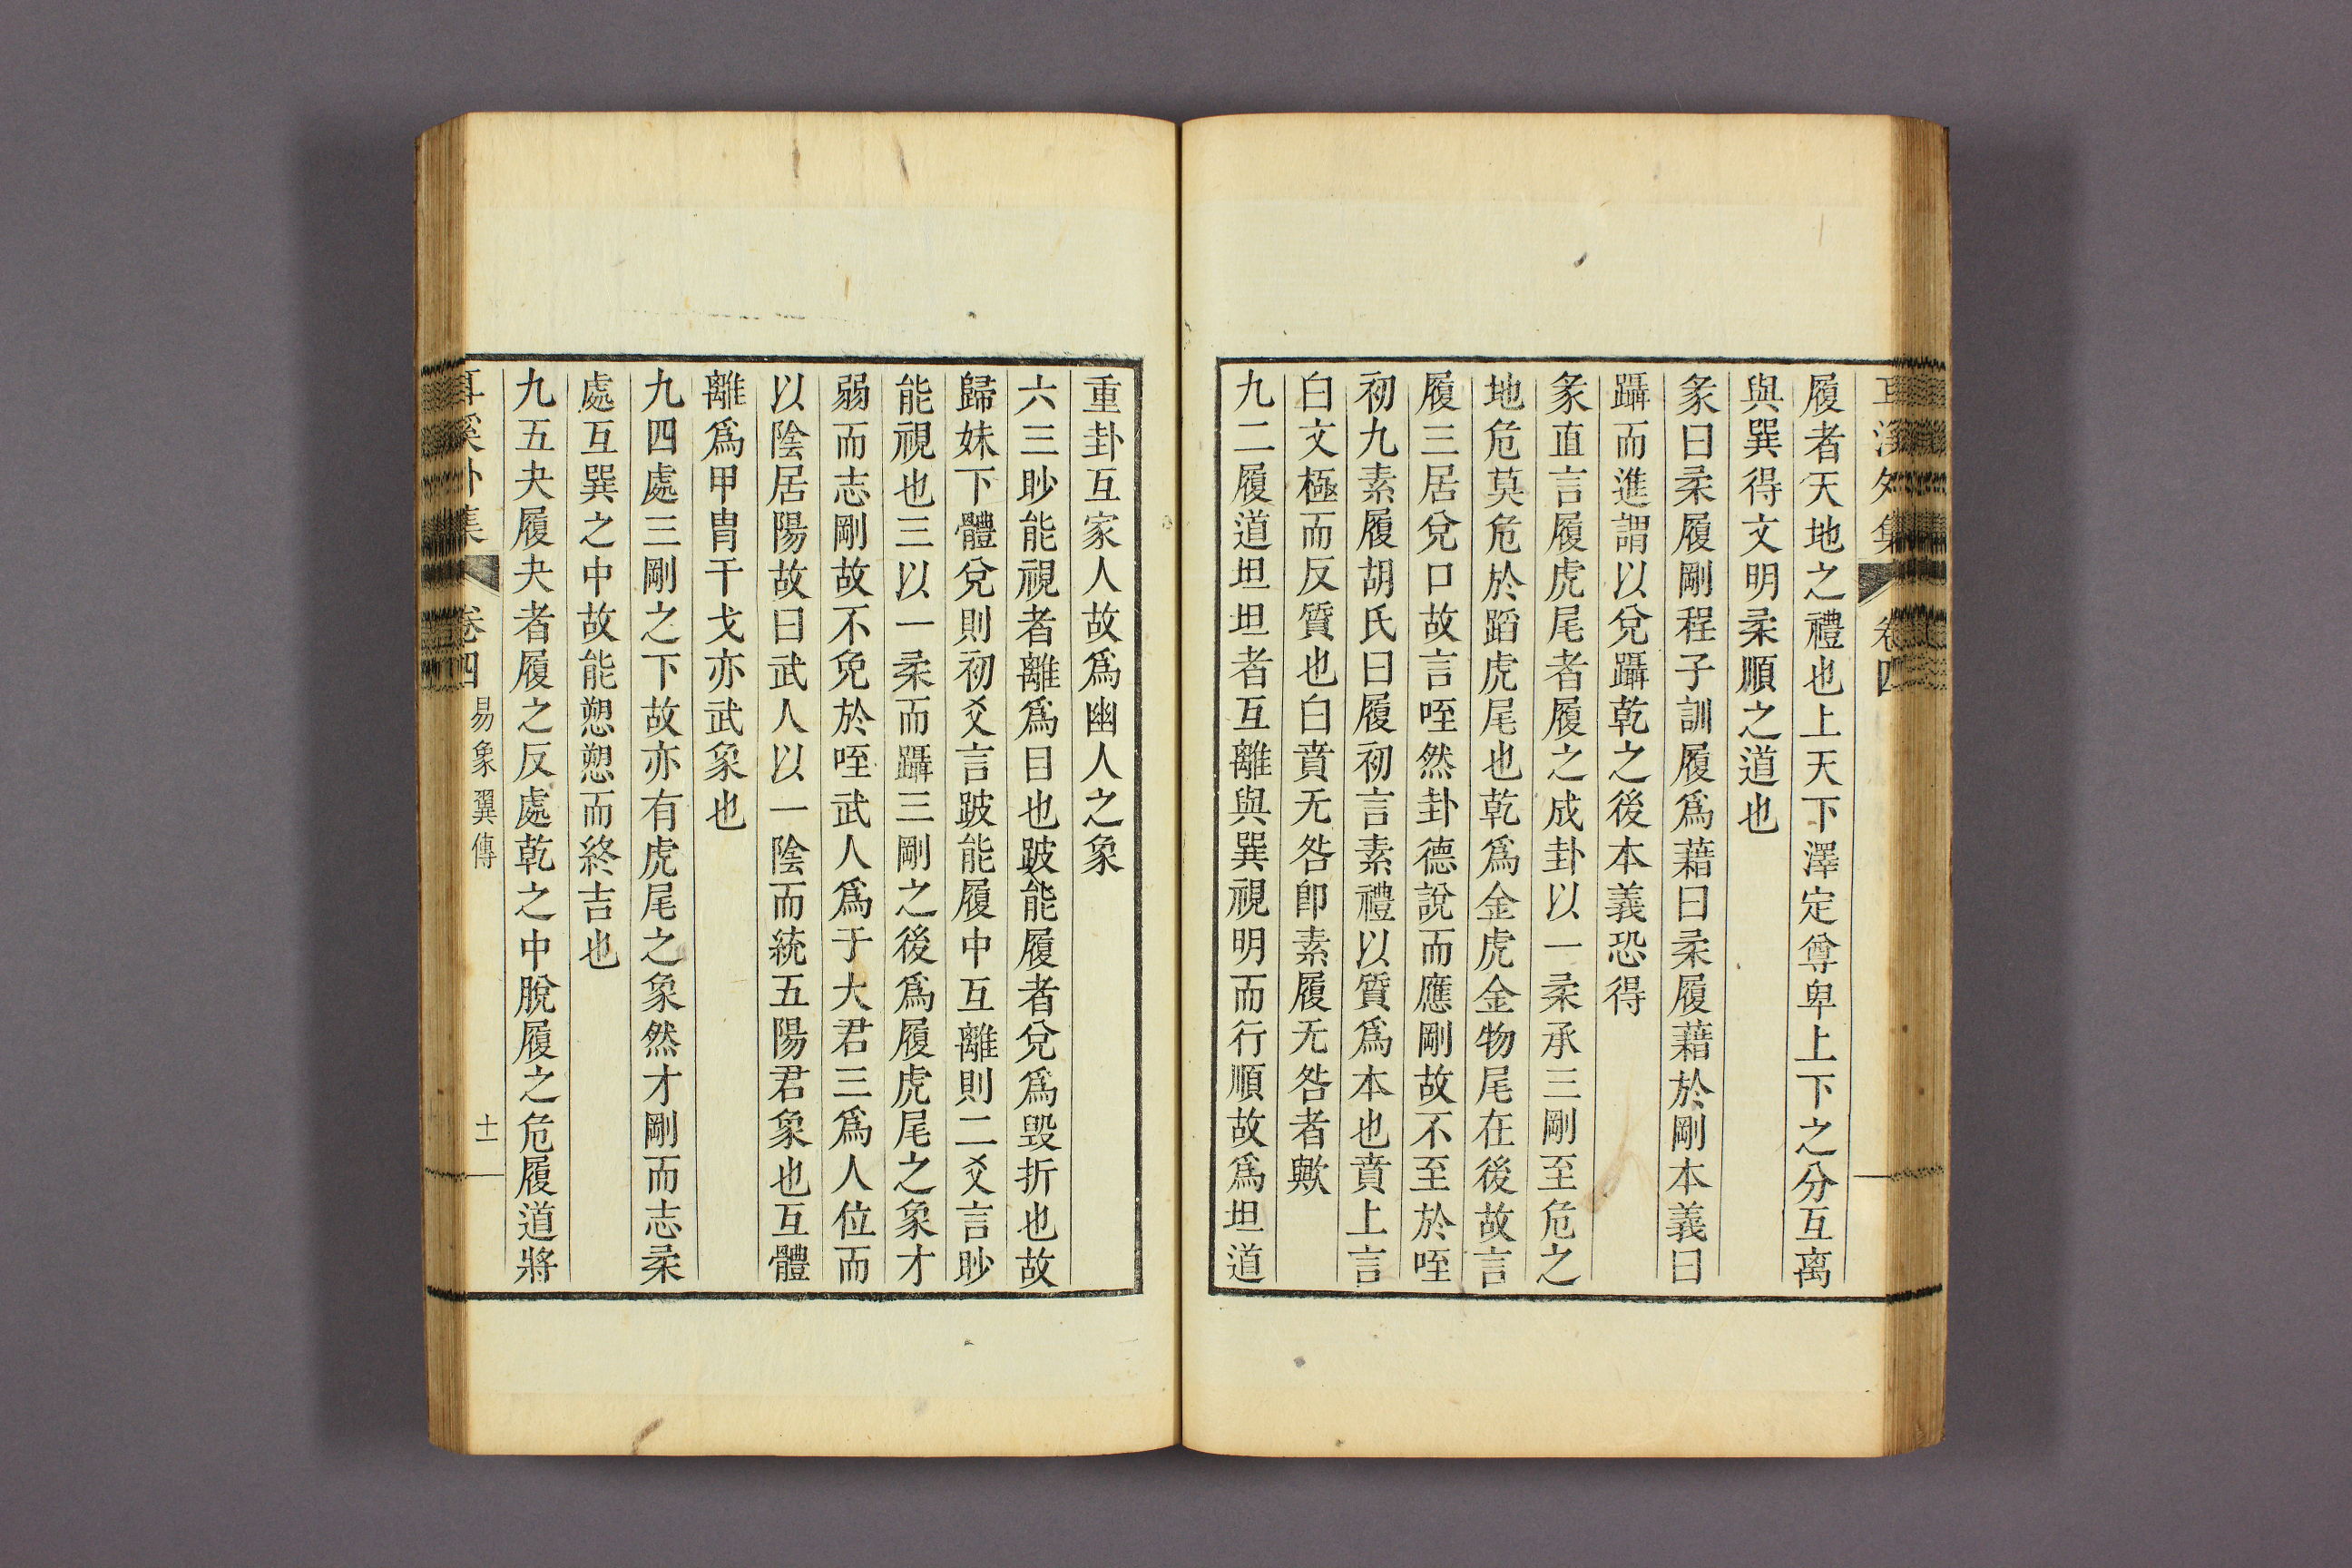 履者天地之禮也上天下澤定尊卑上下之分互离
與巽得文明柔順之道也
彖曰柔履剛程子訓履爲藉曰柔履藉於剛本義曰
躡而進謂以兌躡乾之後本義恐得
彖直言履虎尾者履之成卦以一柔承三剛至危之
地危莫危於蹈虎尾也乾爲金虎金物尾在後故言
履三居兌口故言咥然卦德說而應剛故不至於咥
初九素履胡氏曰履初言素禮以質爲本也賁上言
白文極而反質也白賁无咎卽素履无咎者歟
九二履道坦坦者互離與巽視明而行順故爲坦道
重卦互家人故爲幽人之象
六三眇能視者離爲目也跛能履者兌爲毀折也故
歸妹下體兌則初爻言跛能履中互離則二爻言眇
能視也三以一柔而躡三剛之後爲履虎尾之象才
弱而志剛故不免於咥武人爲于大君三爲人位而
以陰居陽故曰武人以一陰而統五陽君象也互體
離爲甲胄干戈亦武象也
九四處三剛之下故亦有虎尾之象然才剛而志柔
處互巽之中故能愬愬而終吉也
九五夬履夬者履之反處乾之中脫履之危履道將
耳溪外集 卷四 易象翼傳 十一